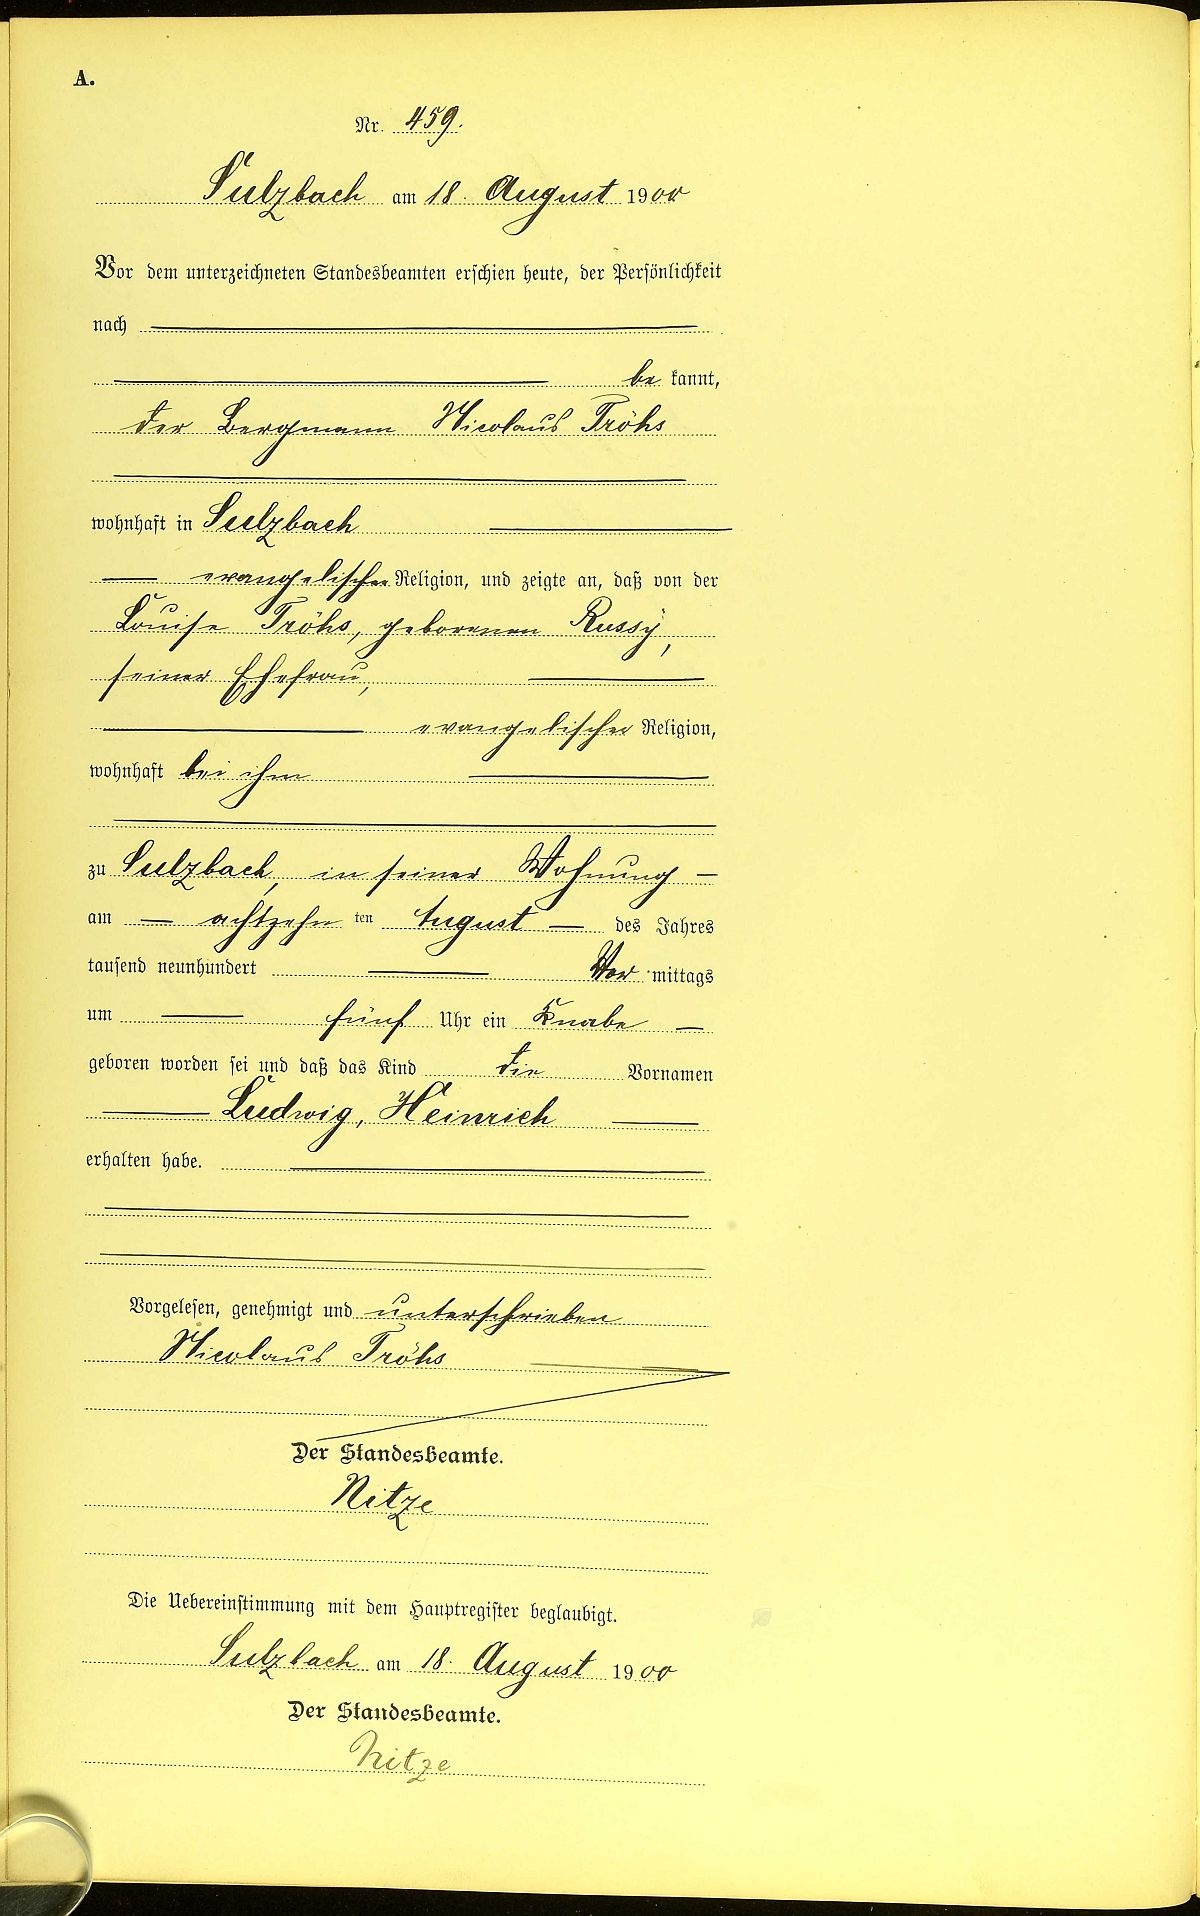 A.
Nr. 459.
Sulzbach am 18. August 1900
Vor dem unterzeichneten Standesbeamten erschien heute, der Persönlichkeit
nach
be kannt,
der Bergmann Nicolaus Tröhs
wohnhaft in Sulzbach
evangelischer Religion, und zeigte an, daß von der
Louise Tröhs, geborenen Russy,
seiner Ehefrau,
evangelischer Religion,
wohnhaft bei ihm
zu Sulzbach, in seiner Wohnung —
am — achtzehn ten August — des Jahres
tausend neunhundert — Vor mittags
um — fünf Uhr ein Knabe —
geboren worden sei und daß das Kind die Vornamen
Ludwig, Heinrich
erhalten habe.
Vorgelesen, genehmigt und unterschrieben
Nicolaus Tröhs
Der Standesbeamte.
Nitze
Die Uebereinstimmung mit dem Hauptregister beglaubigt.
Sulzbach am 18. August 1900
Der Standesbeamte.
Nitze